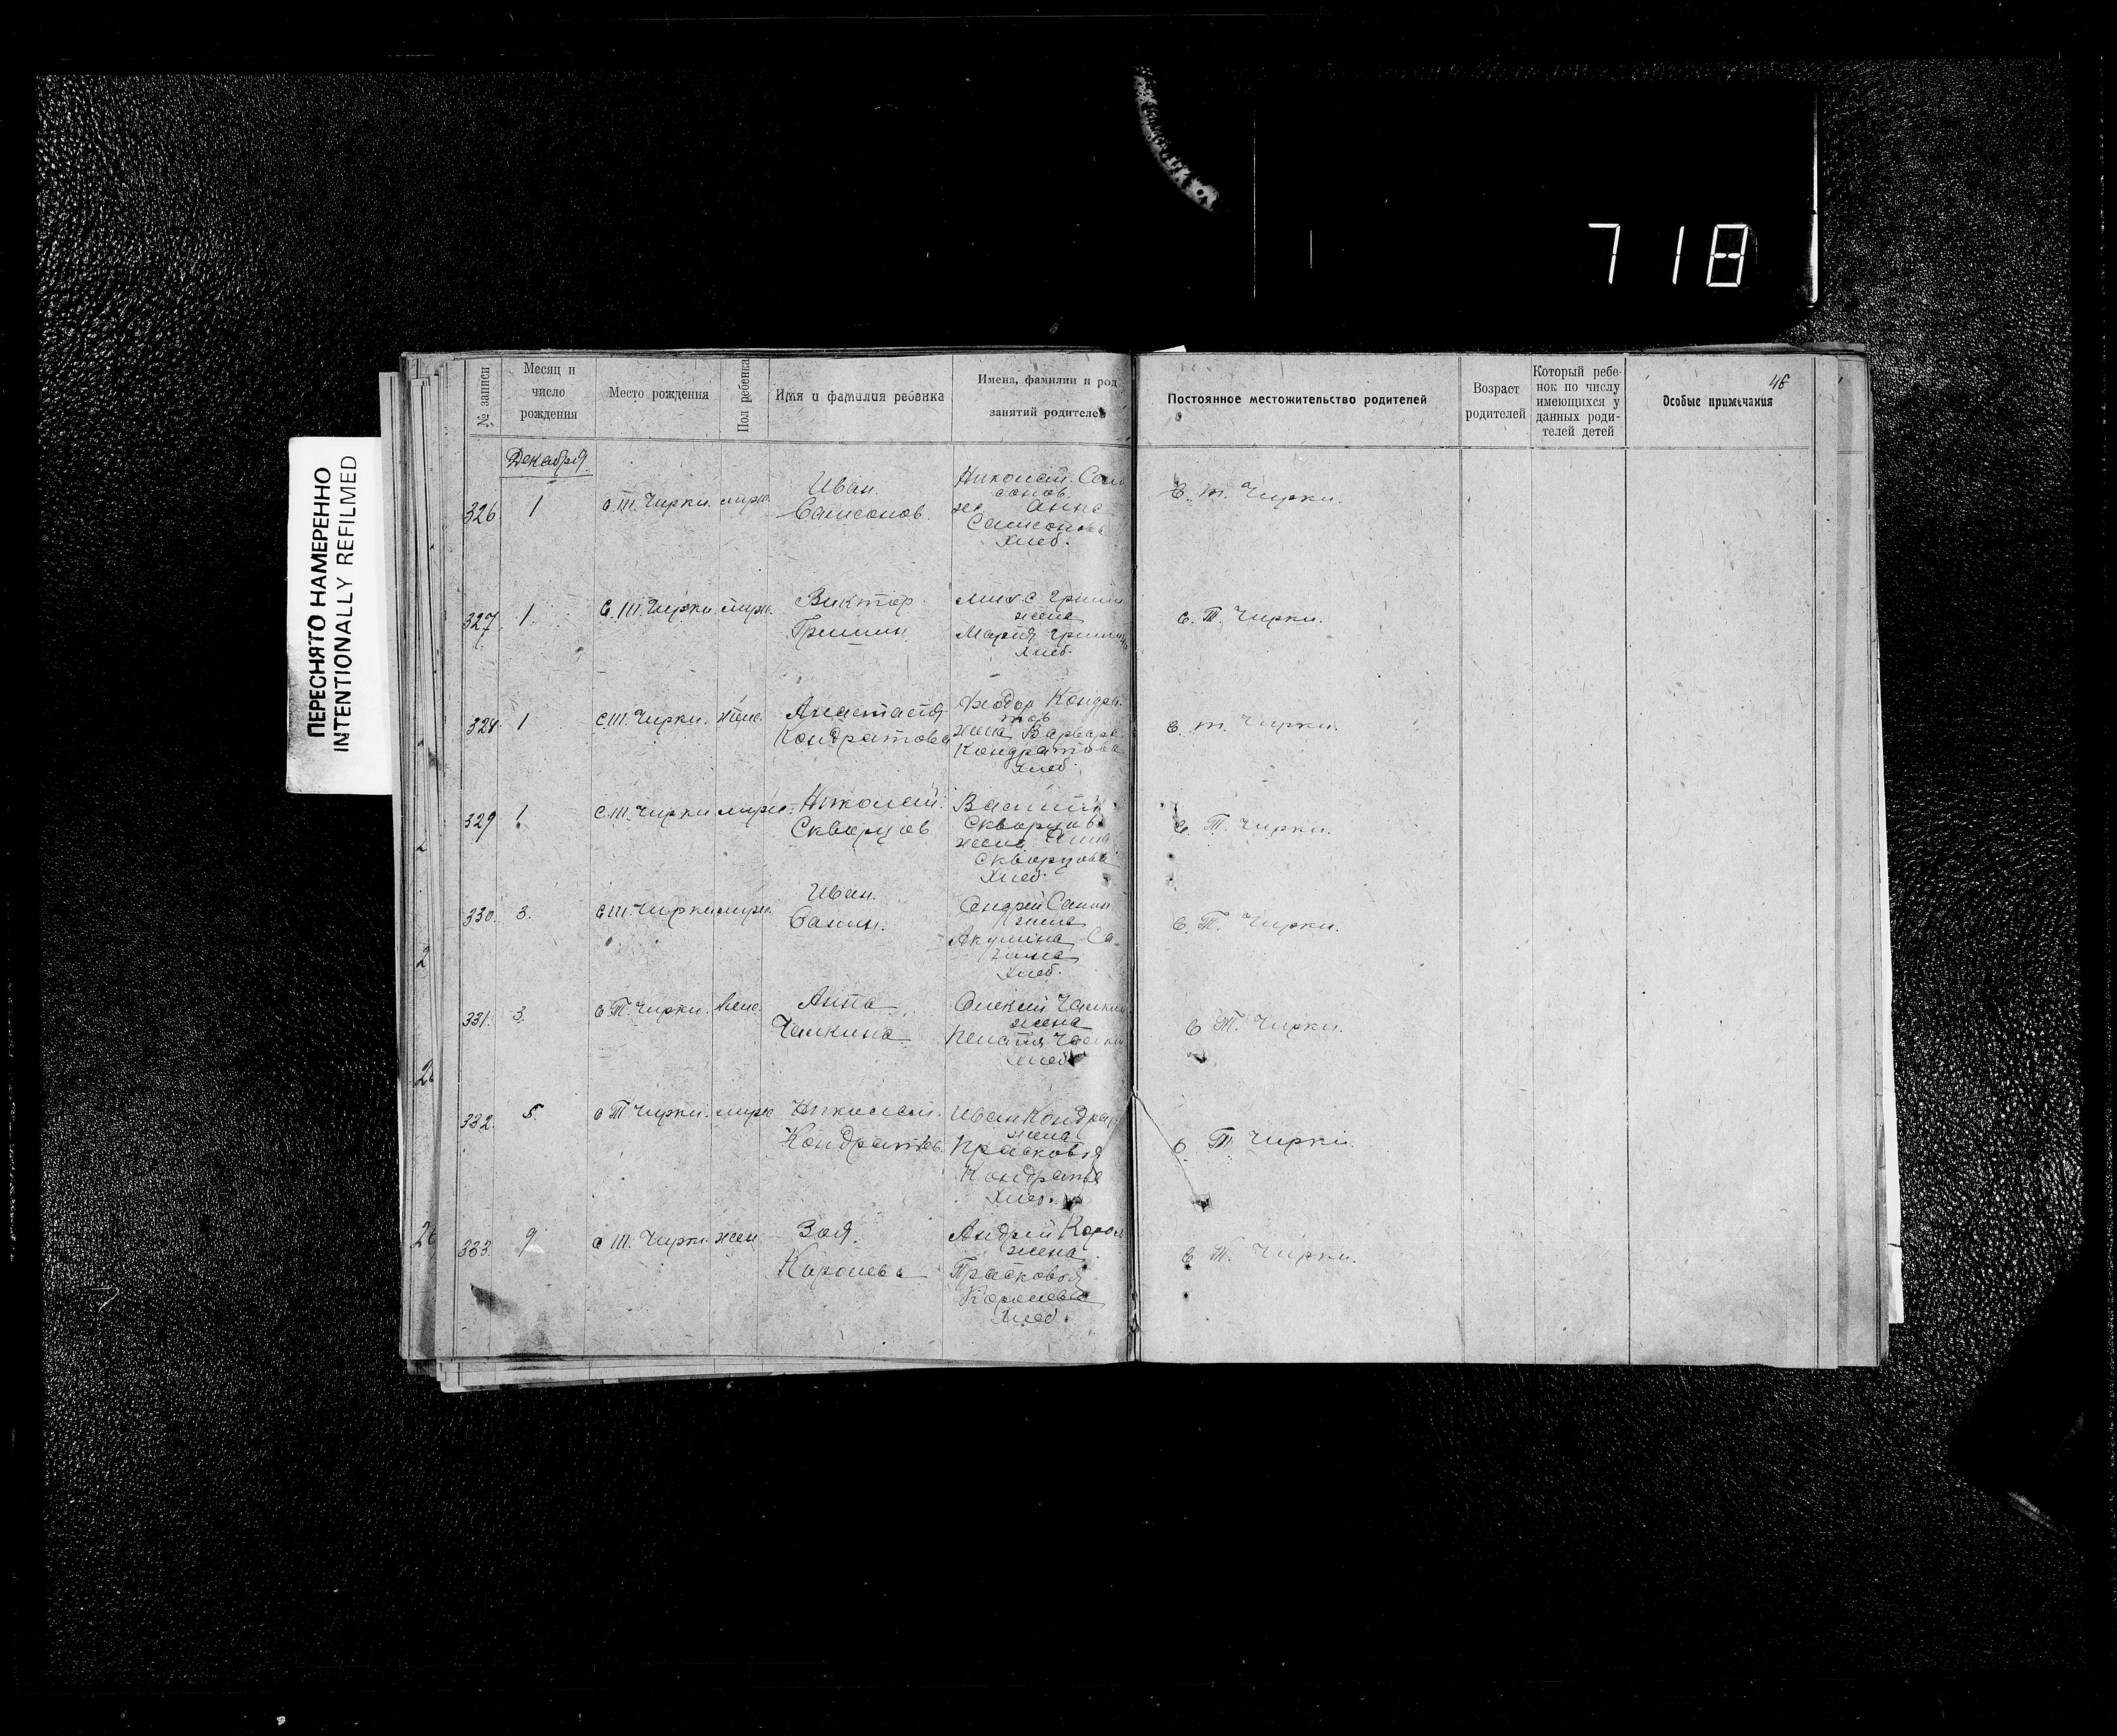 718
ПЕРЕСНЯТО НАМЕРЕННО
INTENTIONALLY REFILMED
№ записи
Месяц и
число
рождения
Место рождения
Пол ребенка
Имя и фамилия ребенка
Имена, фамилии и род
занятий родителей
Постоянное местожительство родителей
Возраст
родителей
Который ребе-
нок по числу
имеющихся у
данных роди-
телей детей
Особые примечания
46
Декабря
326 1 с. т. Чирки. муж.
Иван.
Самсонов.
Николай Сам
сонов.
Анна
Самсонова
Хлеб.
С. т. Чирки.
327 1. С. Т. Чирки. муж.
Виктор
Гришин
Мих. С Гриши
жена
Мария Гришин
Хлеб.
С. Т. Чирки.
328 1 с. т. Чирки. жен.
Анастасия
Кондратова
Феодор Кондра
тов
жена Варвара
Кондратова
Хлеб.
С. т. Чирки.
329 1 С. т. Чирки муж.
Николай
Скворцов
Василий
Скворцов
жена Анна
Скворцова
Хлеб.
С. Т. Чирки.
330. 3. С т. Чирки муж.
Иван.
Санин.
Андрей Санин
жена
Акулина Са-
нина
Хлеб.
С. Т. Чирки.
331. 3. С Т. Чирки. жен.
Анна
Чалкина
Алексей Чалкин
жена
Чалки
Хлеб
С Т. Чирки.
332. 5. с Т Чирки. муж
Николай.
Кондратьев.
Иван Кондра
жена
Прасковья
Кондратье
Хлеб.
С. Т. Чирки.
333. 9 с т. Чирки. жен
Зоя.
Королева
Андрей Корол
жена
Прасковья
Королева
Хлеб.
С Т. Чирки.